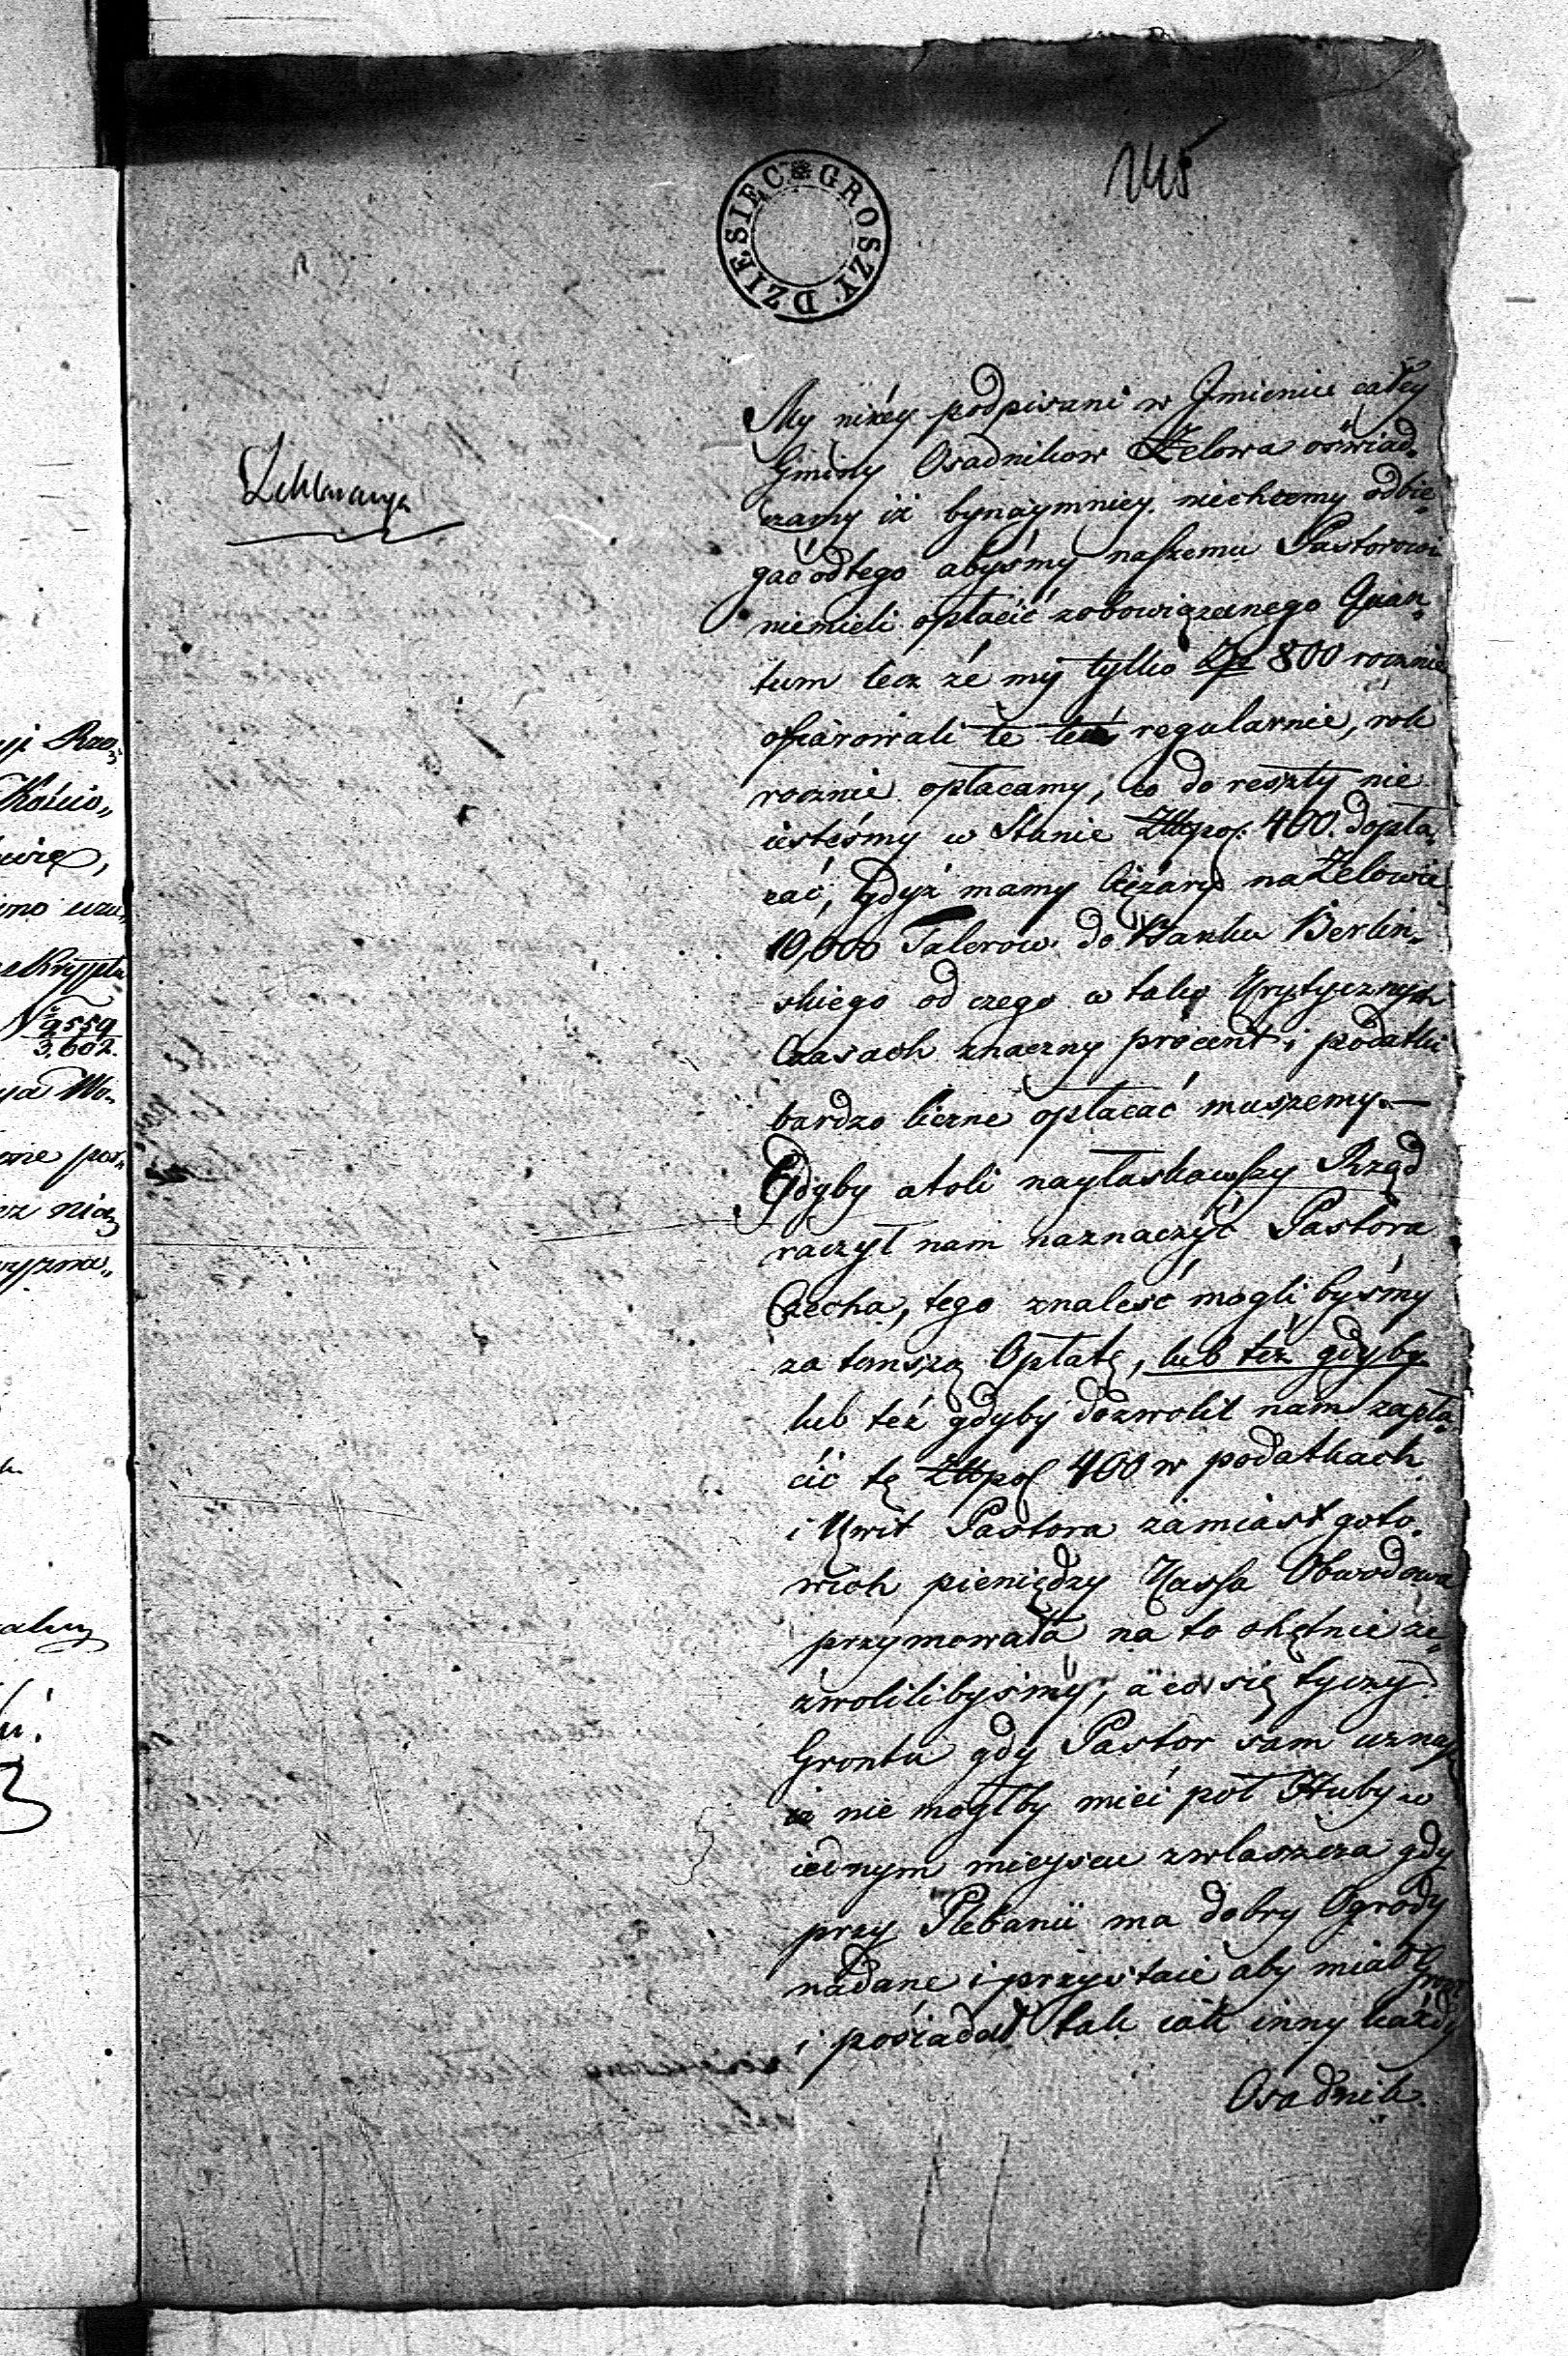 145
DZIESIEC GROSZY
Deklaracya
My niżey podpisani w Jmieniu całey
Gminy Osadnikow Zelowa oświad„
czamy iż bynaymniey niechcemy odbie„
gać odtego abyśmy naszemu Pastorowi
niemieli opłacić zobowiązanego Quan„
tum lecz że my tylko Zp 800 rocznie
ofiarowali te też regularnie, rok
rocznie opłacamy, co do reszty nie
iesteśmy w Stanie Złlpol: 400. dopła„
cać, gdyż mamy ciężary na Zelowie
10,000 Talerow do Banku Berlin„
skiego od czego w takig Krytycznych
Czasach znaczny procent i podatki
bardzo liczne opłacać muszemy.—
Gdyby atoli nayłaskawszy Rząd
raczył nam naznaczyć Pastora
Czecha, tego znaleść mogli byśmy
za tanszą Opłatę, lub też gdyby
lub też gdyby dozwolił nam zapła„
cić tę Złlpol 400 w podatkach
i Kwit Pastora zamiast goto„
wich pieniędzy Kassa Obwodowa
przymowała na to chętnie ze„
zwolilibyśmy, a co się tyczy
Grontu gdy Pastor sam uznał
iż nie mogłby mieć poł Huby w
iednym mieyscu zwłaszcza gdy
przy Plebanii ma dobry Ogrody
nadane i przystaie aby miał Gront
i posiadał tak iak inny każdy
Osadnik.
yi Rzą„
Kościo„
imo uzu„
No 9559
3,602.
ya Wo„
one pos„
ez nią
yzna„